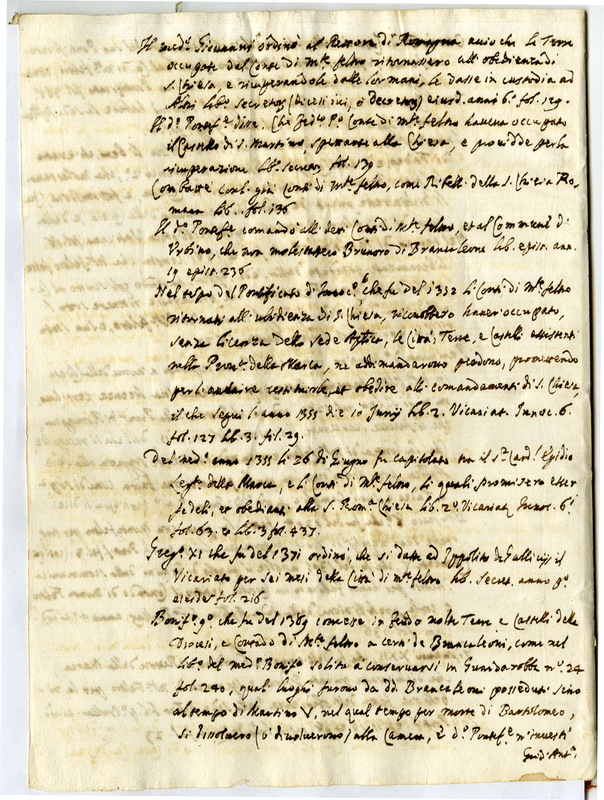 Il med.º Giovanni ordinò al Rettore di Romagna acciò che le Terre
occupate dal Conte di M.te feltro ritornassero all'obedienza di
S. Chiesa, e ricuperandole dalle lor mani, le dasse in custodia ad
Altri lib.º secretor, (dicesi ivi, ò decretor) eiusd. anni 6.º fol. 129.
Il d.º Pontefice disse, che Fed.co P.º Conte di M.te feltro haveva occupato
il Castello di S. Martino, spettante alla Chiesa, e providde per la
ricuperazione lib.º secretor, fol. 139
Combattè con li già Conti di M.te feltro, come Ribelli della S. Chiesa Ro-
mana lib. fol. 136
Il d.º Pontefice comandò alli detti Conti di M.te feltro, et al Commune di
Urbino, che non molestassero Brunoro di Brancaleone lib. epist. ann.
19 epist. 236
Nel tempo del Pontificato di Innoc.º 6 che fu del 1352 li Conti di M.te feltro
ritornati all'ubidienza di S. Chiesa, riconobbero haver occupato,
senza licenza della Sede Ap.lica, le Città, Terre, e Castelli esistenti
nella Prov.a della Marca, ne addimandarono perdono, promettendo
per l'avvenire restituirle, et obedire alli comandamenti di S. Chiesa,
il che seguì l'anno 1355 di e 10 Junij lib. 2. Vicariat. Innoc. 6.
fol. 127 lib. 3. fol. 29.
Del med.º anno 1355 li 26 di Giugno fu capitolato tra il S.r Card.l Egidio
Leg.to della Marca, e li Conti di M.te feltro, li quali promisero esser
fedeli, et obedienti alla S. Rom.a Chiesa lib. 2.º Vicariat, Innoc. 6.i
fol. 63. et lib. 3 fol. 437.
Greg.º XI che fu del 1371 ordinò, che si dasse ad Ippolito de Gallicijs il
Vicariato per sei mesi della Città di M.te feltro lib. Secret. anno p.º
eiusdem fol. 216
Bonif.º 9.º che fu del 1389 concesse in feudo molte Terre e Castelli della
Diocesi, e Contado di M.te feltro a certi de Brancaleoni, come nel
lib.º del med.º Bonif.º solito a conservarsi in Guardarobba n.º 24
fol. 240, quali luoghi furono da dd. Brancaleoni posseduti sino
al tempo di Martino V, nel qual tempo per morte di Bartolomeo,
si dissolvero (ò divolverono) alla Camera, e d.º Pontef.e n'investì
Guid'Ant.º